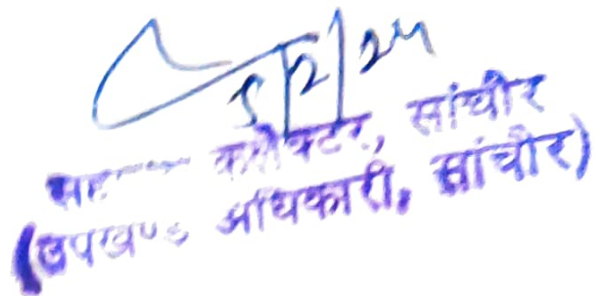 5/2/24
कलेक्टर, सांचौर
(उपखण्ड अधिकारी, सांचौर)